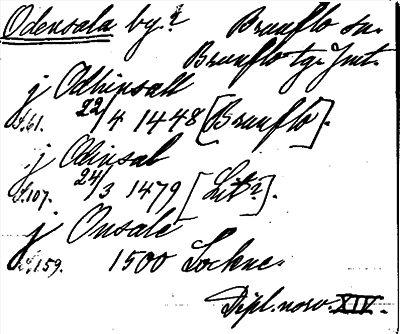 Odensala by.² Brunflo sn.
Brunflo tg. Jmt.
j Odhinsall
s.61. 22/4 1448 [Brunflo].
j Odinsal
s.107. 24/3 1479 [Lit²].
j Onsale
s.159. 1500 Lockne.
Dipl. norv. XIV.